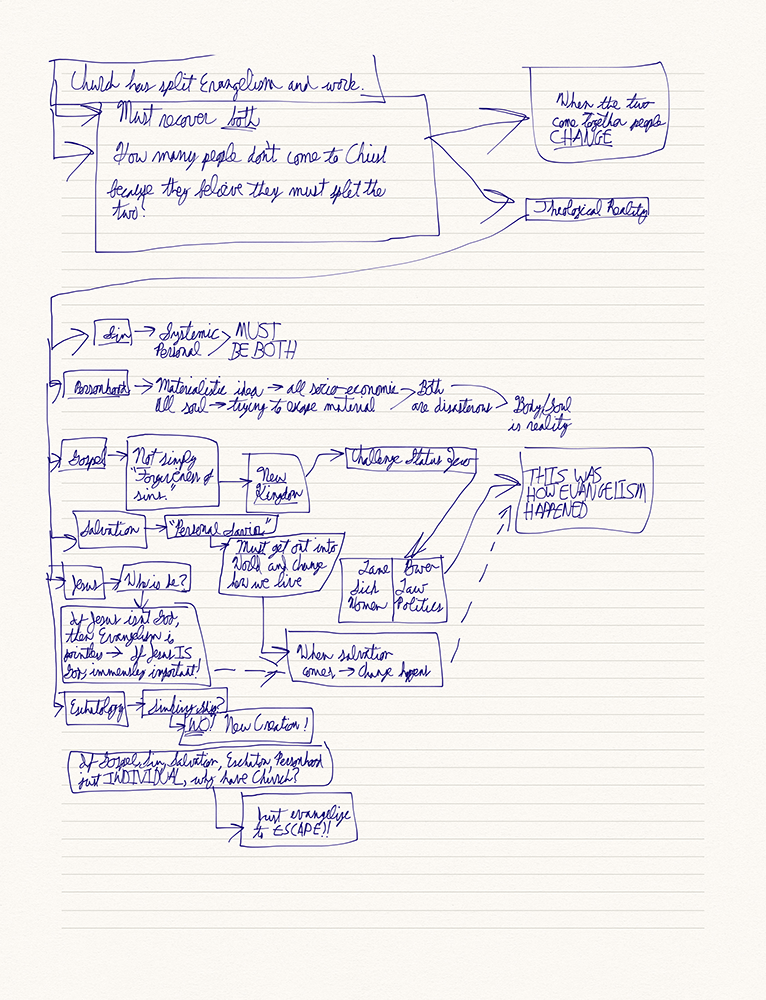 Church has split Evangelism and work.
Must recover both
How many people don't come to Christ
because they believe they must split the
two?
When the two
come together people
CHANGE
Theological Reality
Sin
Systemic
Personal
MUST
BE BOTH
Personhood
Materialistic idea → all socio-economic
All soul → trying to escape material
Both
are disasterous
Body/Soul
is reality
Gospel
Not simply
"Forgiveness of
sins."
New
Kingdom
Challenge Status Quo
THIS WAS
HOW EVANGELISM
HAPPENED
Salvation
"Personal Savior"
Must get out into
World and change
how we live
Lame
Sick
Women
Power
Law
Politics
Jesus
Who is he?
If Jesus isn't God,
then Evangelism is
pointless → If Jesus IS
God, immensely important!
When salvation
comes → change happens
Eschatology
Sinking ship?
NO! New Creation!
If Gospel, Sin, Salvation, Eschaton, Personhood
just INDIVIDUAL, why have Church?
Just evangelize
to ESCAPE!!